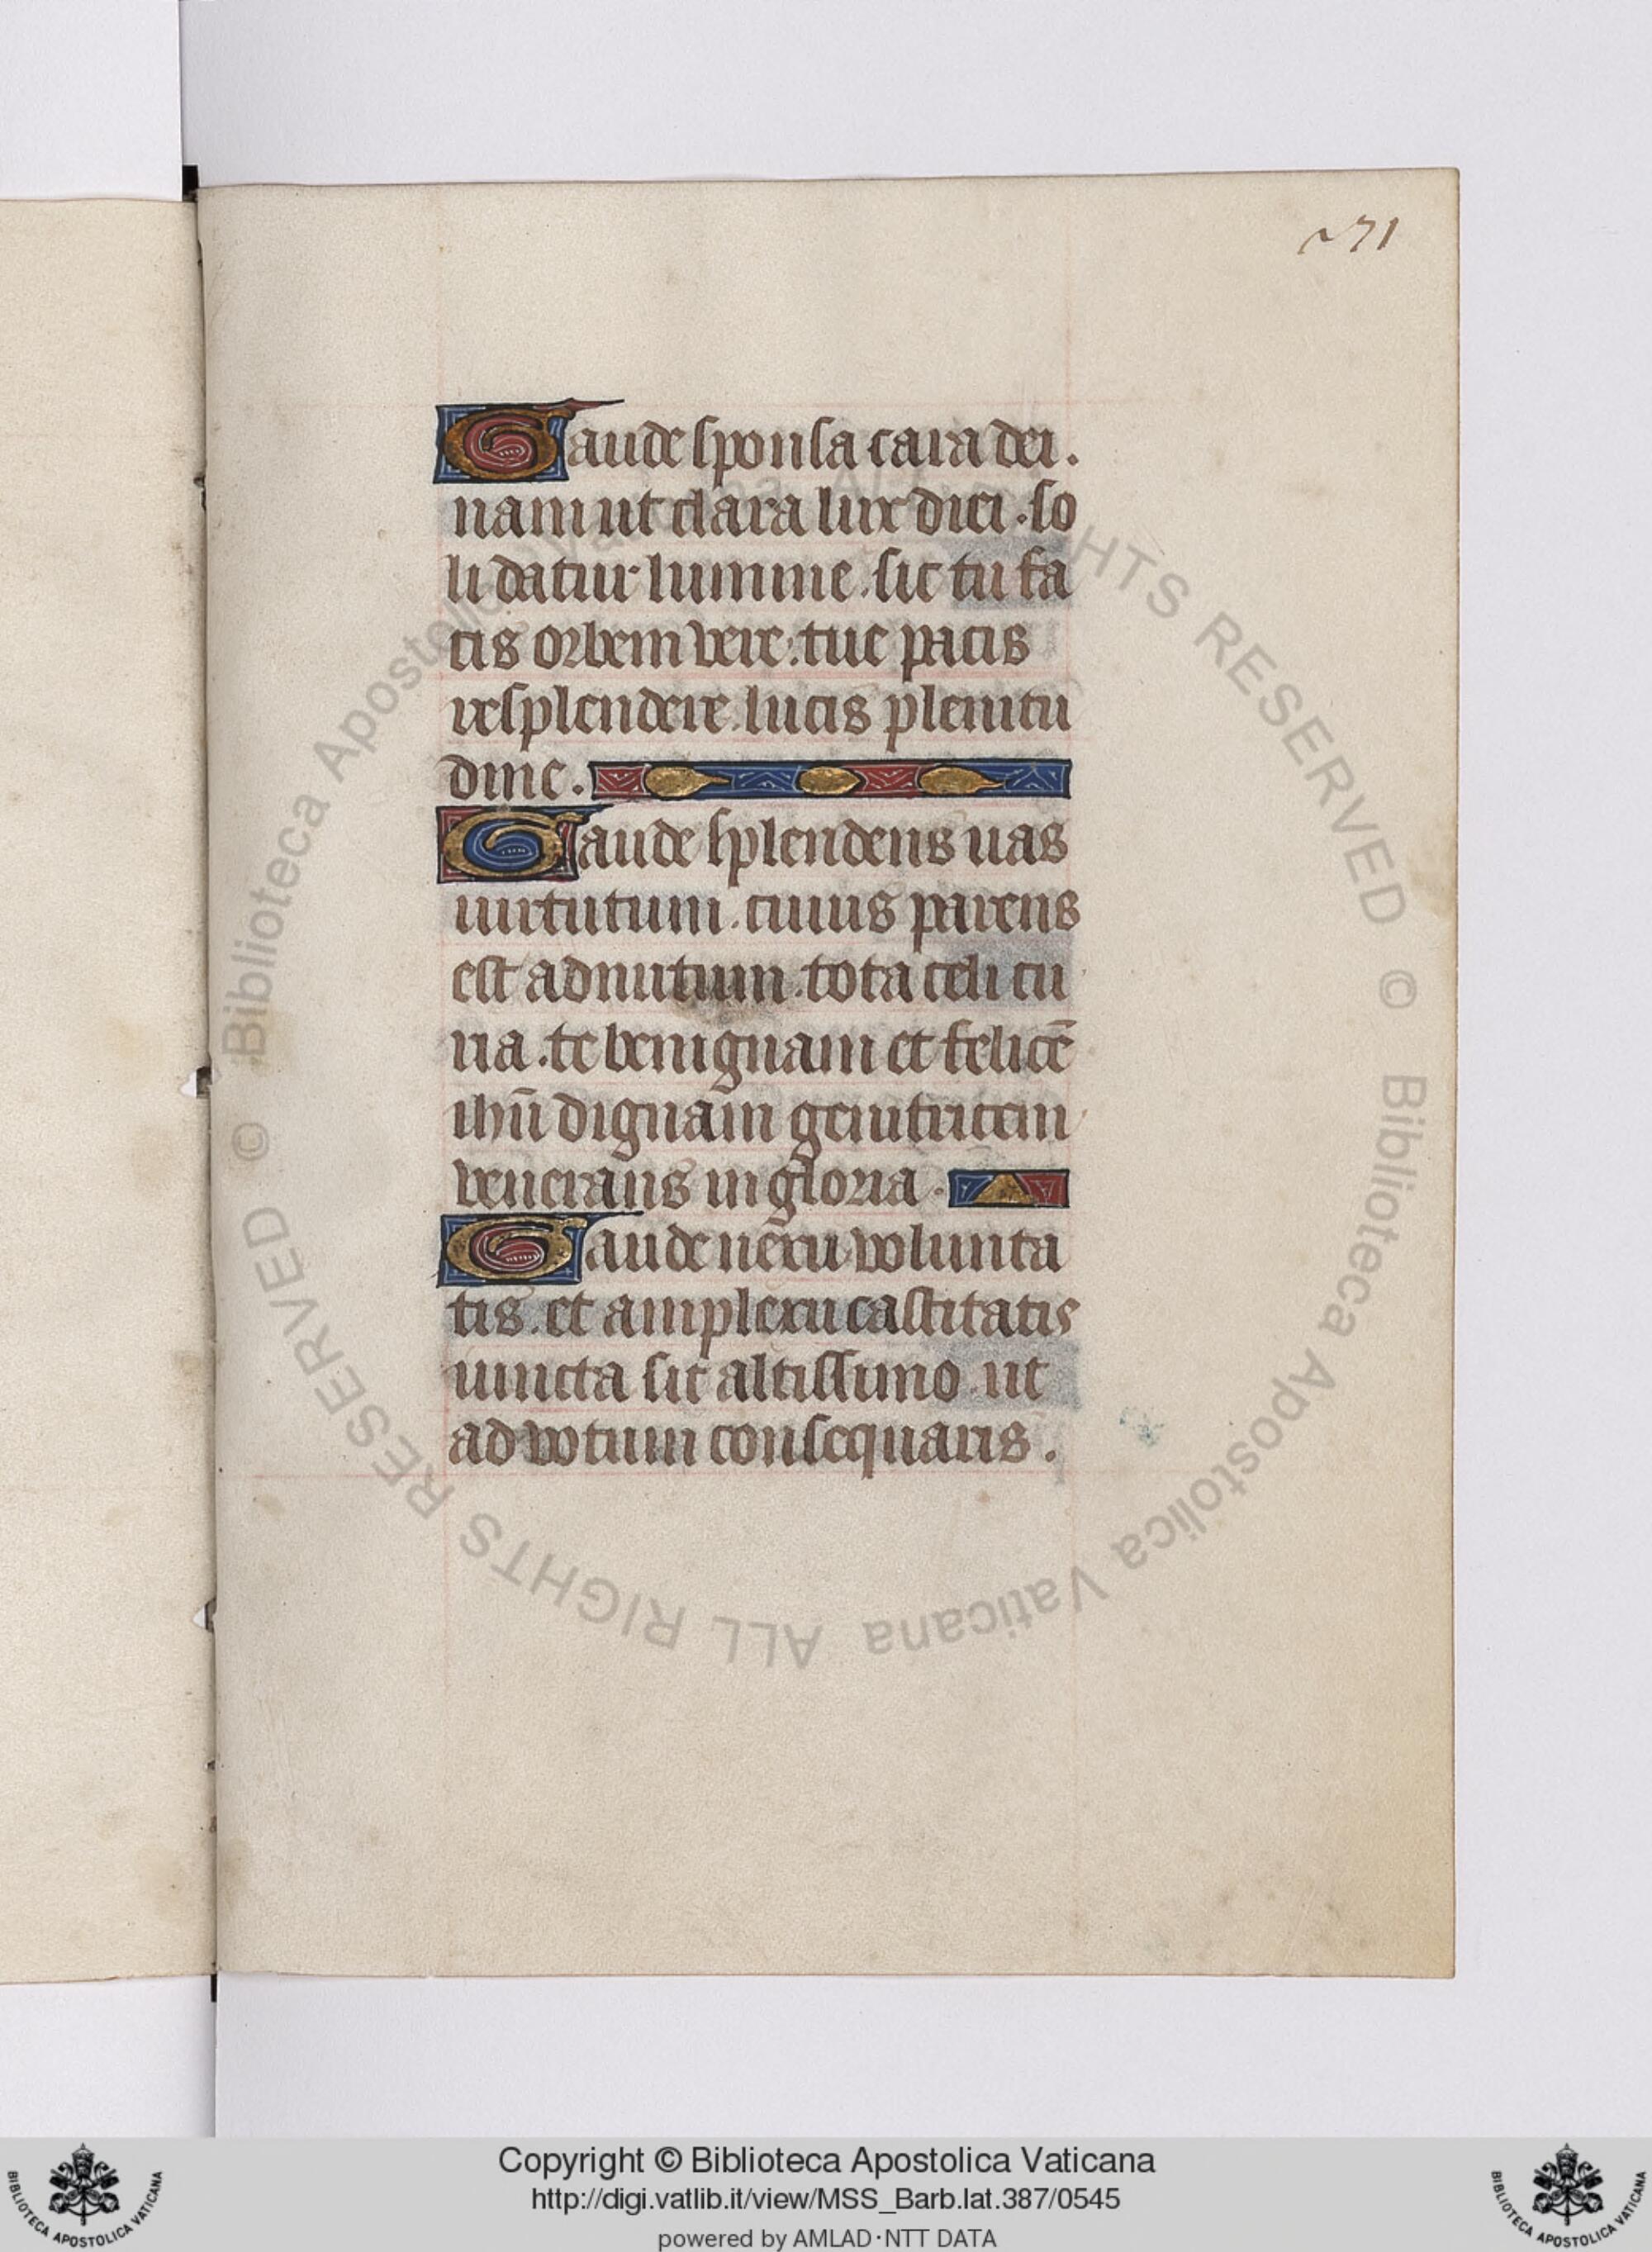 271
Gaude sponsa cara dei.
nam ut clara lux diei . so
li datur lumine . sic tu fa
cis orbem vere . tue pacis
resplendere lucis plenitu
dine .
Gaude splendens uas
uirtutum . cuius parens
est ad nutum . tota celi cu
ria . te benignam et felicē
ihū dignam genitricem
venerans in gloria .
Gaude nexu volunta
tis . et amplexu castitatis
uincta sic altissimo . ut
ad votum consequaris .
© Biblioteca Apostolica Vaticana ALL RIGHTS RESERVED © Biblioteca Apostolica Vaticana ALL RIGHTS RESERVED
Copyright © Biblioteca Apostolica Vaticana
http://digi.vatlib.it/view/MSS_Barb.lat.387/0545
powered by AMLAD·NTT DATA
BIBLIOTECA APOSTOLICA VATICANA
BIBLIOTECA APOSTOLICA VATICANA